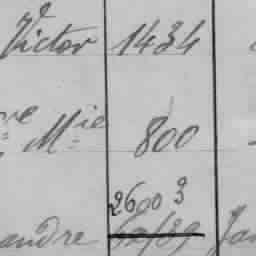 Victor 1434
ve Mie 800
2600 3
andre